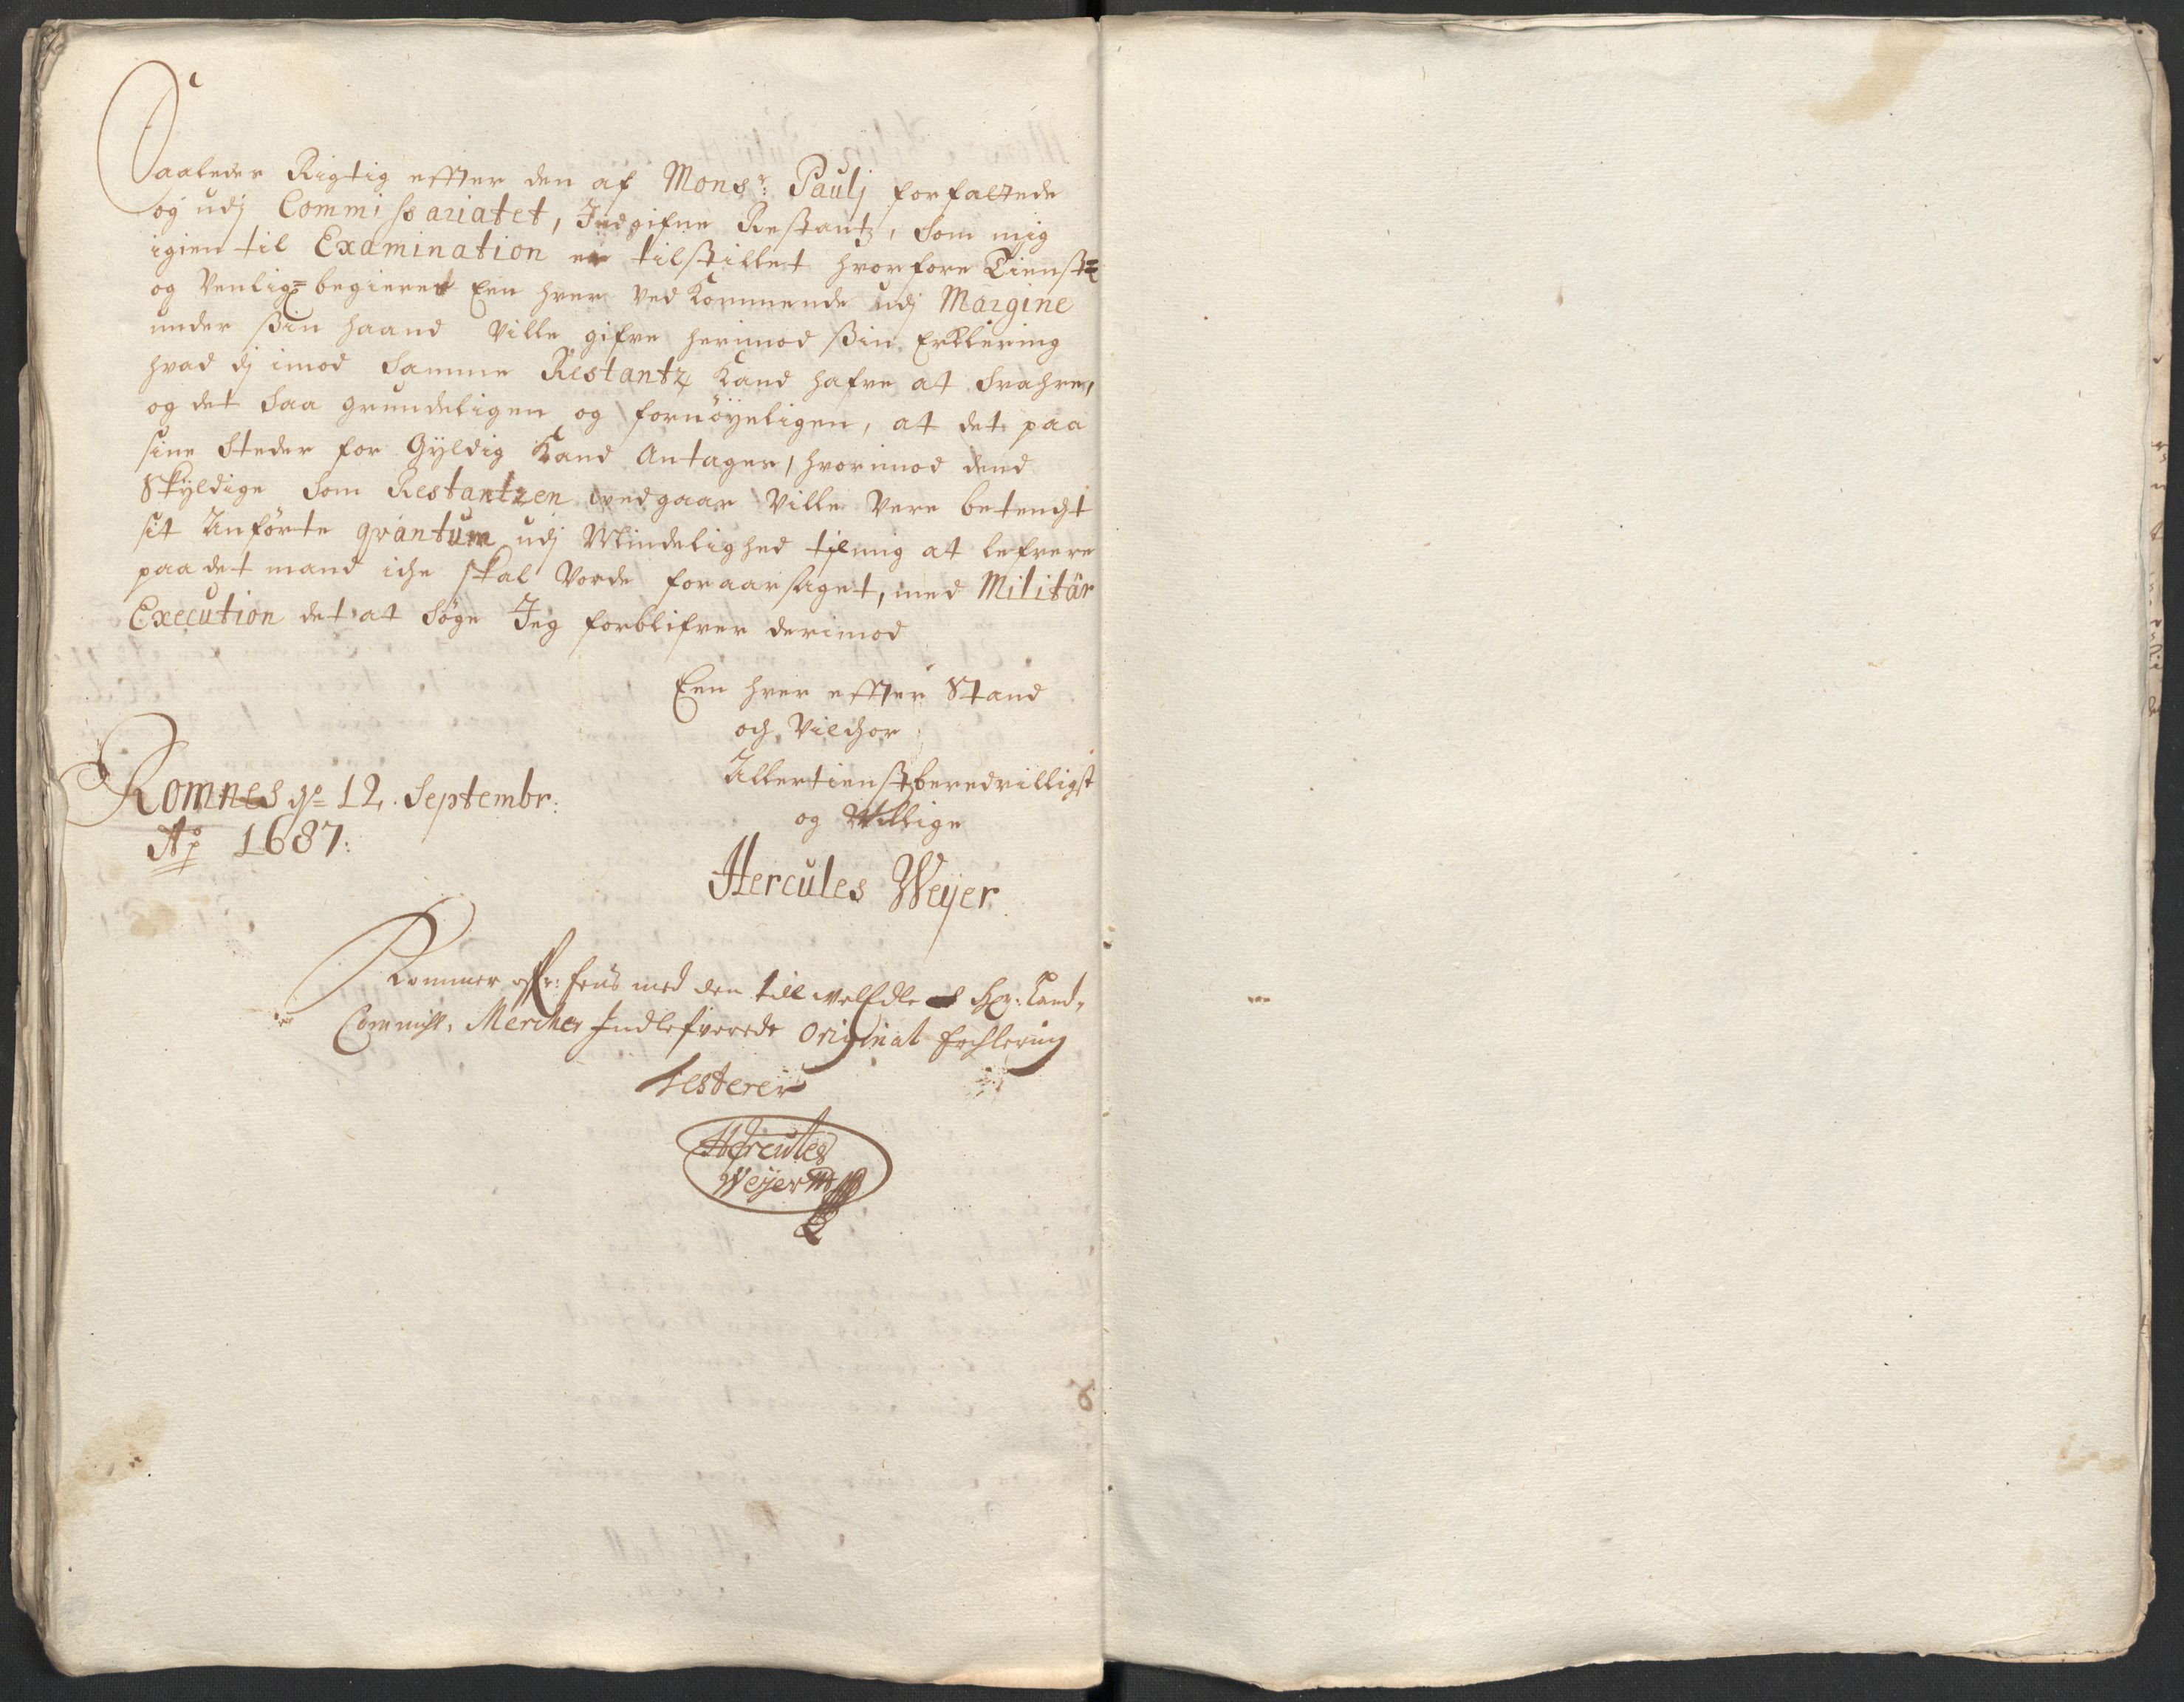 Saaledes Rigtig effter den af Monsr: Paulj forfattede
og udj Commissariatet, Indgifne Restantz, som mig
igien til Examination er tilstillet hvorfore Tienst=
og Venlig= begieres Een hver Vedkommende udj Margine
under Sin haand Ville gifve herimod Sin Erklering
hvad dj imod Samme Restantz kand hafve at Svahre,
og det Saa grundeligen og fornøyeligen, at det paa
sine Steder for Gyldig kand Antages, hvorimod dend
Skyldige Som Restantzen vedgaar Ville Vere betencht
sit Anførte qvantum udj Mindelighed til mig at lefvere
paa det mand iche skal Vorde foraarsaget, med Militär
Execution det at Søge Jeg forblifver derimod
Een hver effter Stand
och Vilchor
Allertienstberedvilligst
og Willige
Romnes d. 12. Septembr:
Ao 1687:
Hercules Weyer
Kommer ofver: Eens med den till welEdle Hr: Land,
Commiss. Mercher Indlefverede Original Erchlering
testerer
Hercules
Weyer